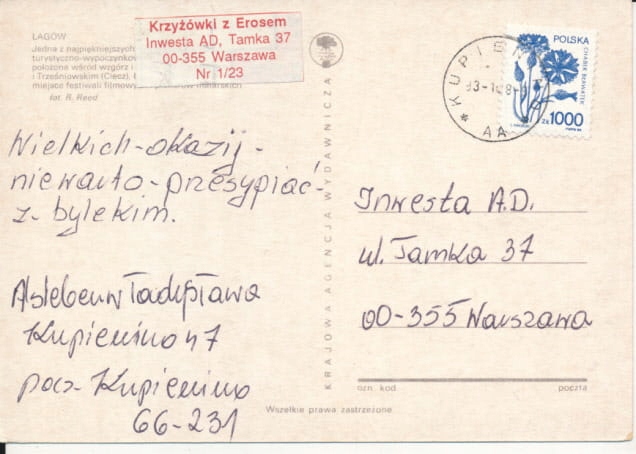 ŁAGÓW
Jedna z najpiękniejszych
turystyczno-wypoczynkow
położona wśród wzgórz i
i Trześniowskim (Ciecz).
miejsce festiwali filmowy
fot. R. Reed
Krzyżówki z Erosem
Inwesta AD, Tamka 37
00-355 Warszawa
Nr 1/23
POLSKA
CHABER BŁAWATEK
zł 1000
KUPIENI
AA
Wielkich-okazij-
niewarto-przesypiać-
z-bylekim.
Władysława
Kupienino 47
pocz-Kupienino
66-231
KRAJOWA AGENCJA WYDAWNICZA
Inwesta A.D.
ul. Tamka 37
00-355 Warszawa
ozn. kod
poczta
Wszelkie prawa zastrzeżone